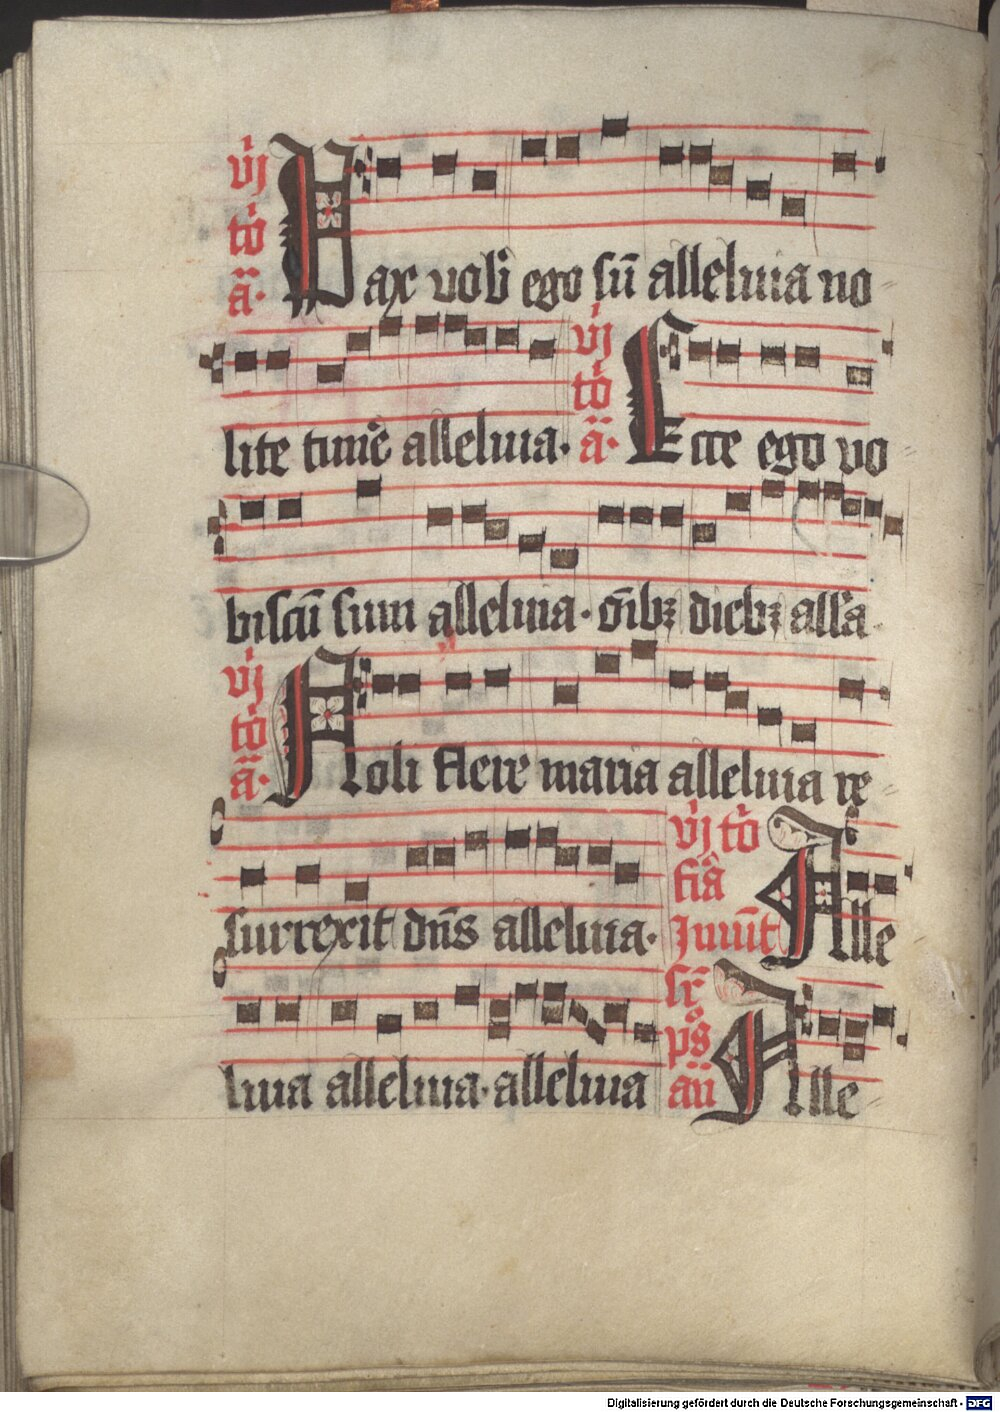 vj
tō
a̅. Pax vob̅ ego su̅ alleluia no
lite time̅ alleluia. vj tō a̅. Ecce ego vo
biscu̅ sum alleluia. o̅ibꝫ diebꝫ all̅a
vj
tō
a̅. Noli flere maria alleluia re
surrexit dn̅s alleluia. vj tō Alle
luia alleluia. alleluia ps̅ an̅ Alle
Digitalisierung gefördert durch die Deutsche Forschungsgemeinschaft - DFG